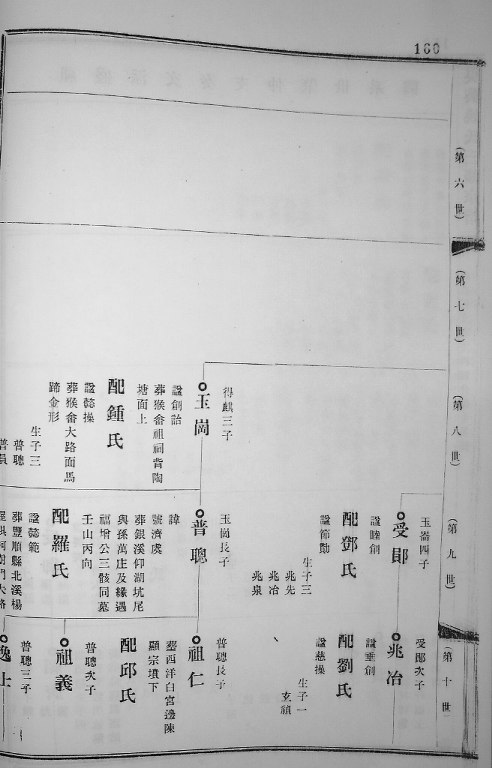 160
(第六世)
(第七世)
(第八世)
得麒三子
玉崗
諡創詒
葬猴畲祖祠背陶
塘面上
配鍾氏
諡懿操
葬猴畲大路面馬
蹄金形
生子三
普聰
普員
(第九世)
玉崙四子
受郎
諡睦創
配鄧氏
諡節勤
生子三
兆先
兆冶
兆泉
玉崗長子
普聰
諱
號濟虞
葬銀溪仰湖坑尾
與孫萬庄及緣遇
福增公三骸同墓
壬山丙向
配羅氏
諡懿範
葬豐順縣北溪楊
(第十世)
受郎次子
兆冶
諡垂創
配劉氏
諡慈操
生子一
玄禎
普聰長子
祖仁
葬西洋白宮邊陳
顯宗墳下
配邱氏
普聰次子
祖義
普聰三子
逸士